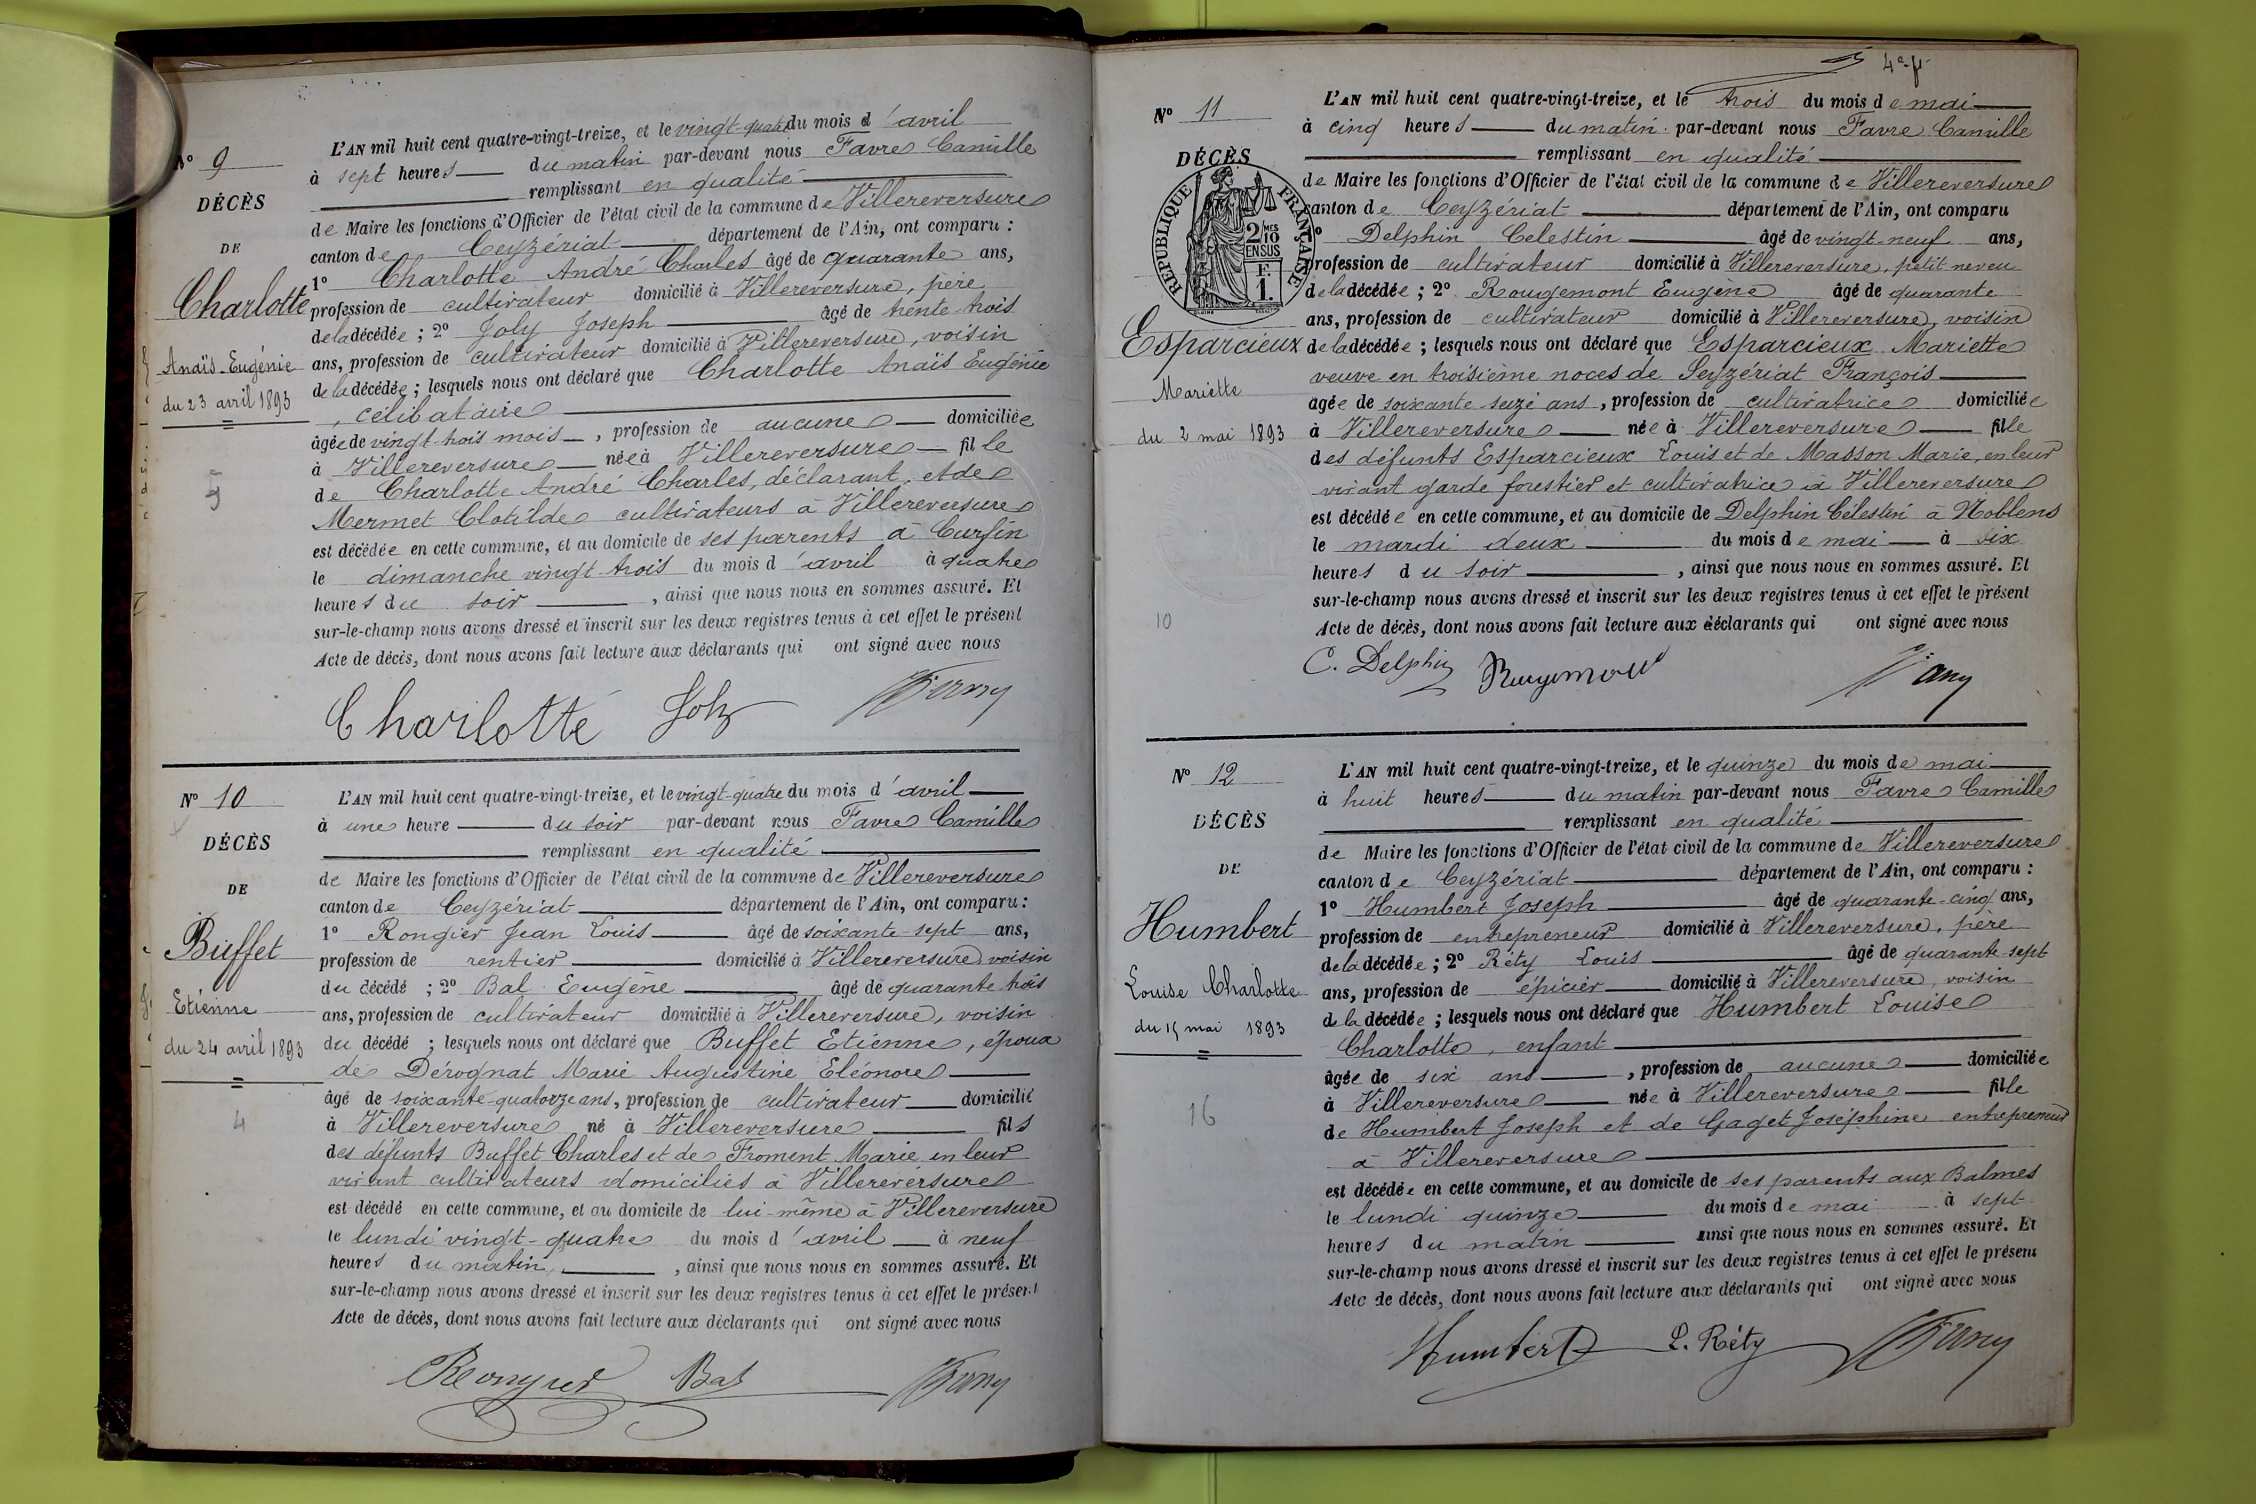 N° 9
DÉCÈS
DE
Charlotte
Anaïs-Eugénie
du 23 avril 1893
L'AN mil huit cent quatre-vingt-treize, et le vingt-quatre du mois d'avril
à sept heures du matin par-devant nous Favre Camille
remplissant en qualité
de Maire les fonctions d'Officier de l'état civil de la commune de Villereversure
canton de Ceyzériat département de l'Ain, ont comparu :
1° Charlotte André Charles âgé de quarante ans,
profession de cultivateur domicilié à Villereversure, père
de la décédée ; 2° Joly Joseph âgé de trente-trois
ans, profession de cultivateur domicilié à Villereversure, voisin
de la décédée ; lesquels nous ont déclaré que Charlotte Anaïs Eugénie
, célibataire
âgée de vingt-trois mois, profession de aucune domiciliée
à Villereversure née à Villereversure fille
de Charlotte André Charles, déclarant, et de
Mermet Clotilde cultivateurs à Villereversure
est décédée en cette commune, et au domicile de ses parents à Curfin
le dimanche vingt-trois du mois d'avril à quatre
heures du soir, ainsi que nous nous en sommes assuré. Et
sur-le-champ nous avons dressé et inscrit sur les deux registres tenus à cet effet le présent
Acte de décès, dont nous avons fait lecture aux déclarants qui ont signé avec nous
Charlotte Joly
N° 10
DÉCÈS
DE
Buffet
Etienne
du 24 avril 1893
4
L'AN mil huit cent quatre-vingt-treize, et le vingt-quatre du mois d'avril
à une heure du soir par-devant nous Favre Camille
remplissant en qualité
de Maire les fonctions d'Officier de l'état civil de la commune de Villereversure
canton de Ceyzériat département de l'Ain, ont comparu :
1° Rongier Jean Louis âgé de soixante-sept ans,
profession de rentier domicilié à Villereversure voisin
du décédé ; 2° Bal Eugène âgé de quarante trois
ans, profession de cultivateur domicilié à Villereversure, voisin
du décédé ; lesquels nous ont déclaré que Buffet Etienne, époux
de Dérognat Marie Augustine Eléonore
âgé de soixante-quatorze ans, profession de cultivateur domicilié
à Villereversure né à Villereversure fils
des défunts Buffet Charles et de Froment Marie en leur
vivant cultivateurs domiciliés à Villereversure
est décédé en cette commune, et au domicile de lui-même à Villereversure
le lundi vingt-quatre du mois d'avril à neuf
heures du matin, ainsi que nous nous en sommes assuré. Et
sur-le-champ nous avons dressé et inscrit sur les deux registres tenus à cet effet le présent
Acte de décès, dont nous avons fait lecture aux déclarants qui ont signé avec nous
Bal
N° 11
DÉCÈS
REPUBLIQUE FRANÇAISE
2 MES
10
EN SUS
F.
1.
Esparcieux
Mariette
du 2 mai 1893
10
L'AN mil huit cent quatre-vingt-treize, et le trois du mois de mai
à cinq heures du matin par-devant nous Favre Camille
remplissant en qualité
de Maire les fonctions d'Officier de l'état civil de la commune de Villereversure
canton de Ceyzériat département de l'Ain, ont comparu
1° Delphin Celestin âgé de vingt-neuf ans,
profession de cultivateur domicilié à Villereversure, petit neveu
de la décédée ; 2° Rougemont Eugène âgé de quarante
ans, profession de cultivateur domicilié à Villereversure, voisin
de la décédée ; lesquels nous ont déclaré que Esparcieux Mariette
veuve en troisième noces de Seyzériat François
agée de soixante-seize ans, profession de cultivatrice domiciliée
à Villereversure née à Villereversure fille
des défunts Esparcieux Louis et de Masson Marie, en leur
vivant garde forestier et cultivatrice à Villereversure
est décédée en cette commune, et au domicile de Delphin Célestin à Noblens
le mardi deux du mois de mai à six
heures du soir, ainsi que nous nous en sommes assuré. Et
sur-le-champ nous avons dressé et inscrit sur les deux registres tenus à cet effet le présent
Acte de décès, dont nous avons fait lecture aux déclarants qui ont signé avec nous
C. Delphin Rougemont
N° 12
DÉCÈS
DE
Humbert
Louise Charlotte
du 15 mai 1893
16
L'AN mil huit cent quatre-vingt-treize, et le quinze du mois de mai
à huit heures du matin par-devant nous Favre Camille
remplissant en qualité
de Maire les fonctions d'Officier de l'état civil de la commune de Villereversure
canton de Ceyzériat département de l'Ain, ont comparu :
1° Humbert Joseph âgé de quarante-cinq ans,
profession de entrepreneur domicilié à Villereversure, père
de la décédée ; 2° Réty Louis âgé de quarante-sept
ans, profession de épicier domicilié à Villereversure, voisin
de la décédée ; lesquels nous ont déclaré que Humbert Louise
Charlotte, enfant
âgée de six ans, profession de aucune domiciliée
à Villereversure née à Villereversure fille
de Humbert Joseph et de Gaget Joséphine entrepreneur
à Villereversure
est décédée en cette commune, et au domicile de ses parents aux Balmes
le lundi quinze du mois de mai à sept
heures du matin ainsi que nous nous en sommes assuré. Et
sur-le-champ nous avons dressé et inscrit sur les deux registres tenus à cet effet le présent
Acte de décès, dont nous avons fait lecture aux déclarants qui ont signé avec nous
Humbert L. Réty